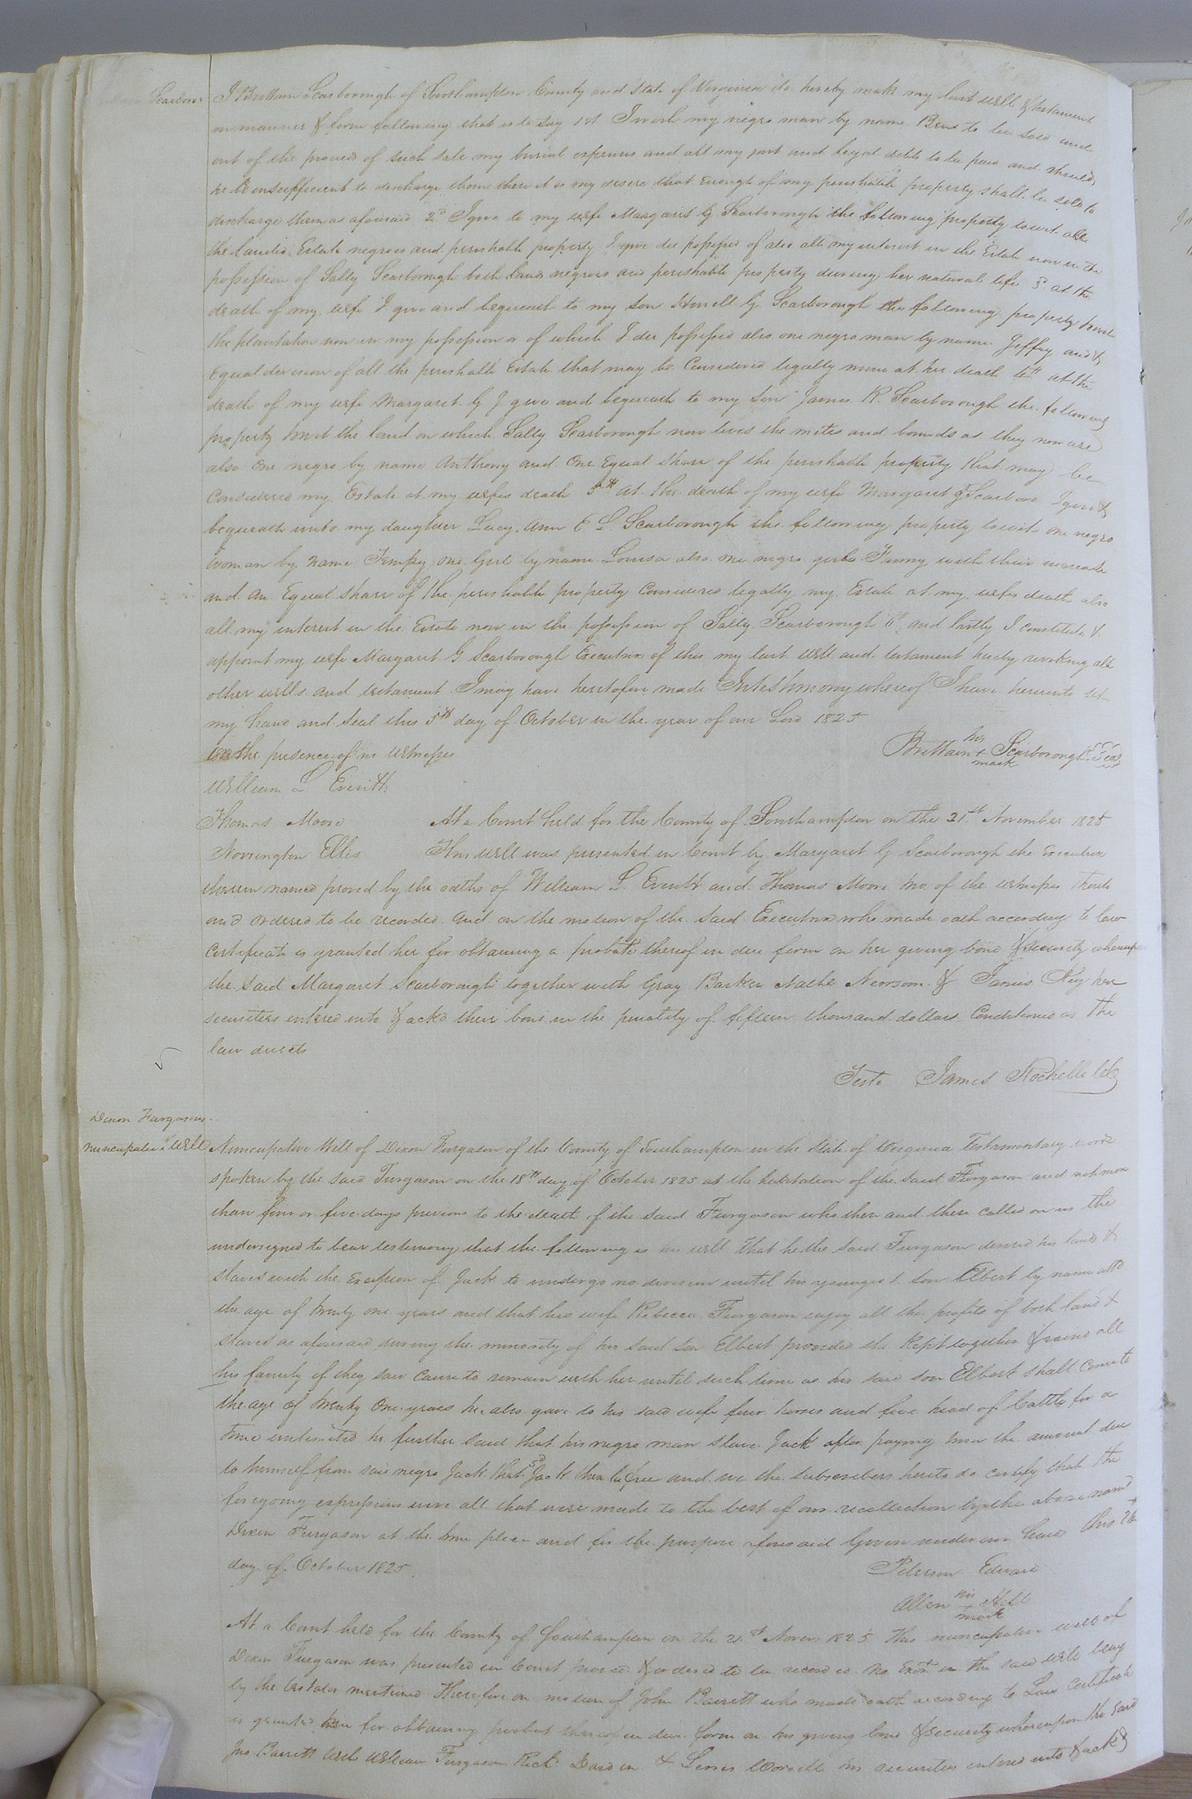 Scarboro
I Brittain Scarborough of Southampton County and State of Virginia do hereby make my last will & testament
in manner & form following that is to say 1st I wish my negro man by name Ben to be sold and
out of the proceeds of such sale my burial expenses and all my just and legal debts to be paid and should
he be insufficient to discharge them then it is my desire that enough of my perishable property shall be sold to
discharge them as aforesaid 2d I give to my wife Margaret G Scarborough the following property towit all
the landed Estate negroes and perishable property I now die possessed of also all my interest in the Estate now in the
possession of Sally Scarborough both land negroes and perishable property during her natural life 3d at the
death of my wife I give and bequeath to my son Howell G Scarborough the following property towit
the plantation now in my possession & of which I die possessed also one negro man by name Jeffry and
Equal division of all the perishable Estate that may be Considered legally mine at her death 4th at the
death of my wife Margaret G I give and bequeath to my son James R. Scarborough the following
property towit the land on which Sally Scarborough now lives the metes and bounds as they now are
also One negro by name Anthony and One Equal Share of the perishable property that may be
Considered my Estate at my wifes death 5th at the death of my wife Margaret G Scarboro I give &
bequeath unto my daughter Lucy Ann E. L Scarborough the following property towit one negro
woman by name Tempy one Girl by name Louisa also one negro girl Fanny with their increase
and An Equal share of the perishable property Considered legally my Estate at my wifes death also
all my interest in the Estate now in the possession of Sally Scarborough 6th and lastly I constitute &
appoint my wife Margaret G Scarborough Executrix of this my last will and testament hereby revoking all
other wills and testament I may have heretofore made In testimony whereof I have hereunto set
my hand and Seal this 5th day of October in the year of our Lord 1825
In the presence of us witnesses
his
Brittain + Scarborough {Seal}
mark
William L Everitt
Thomas Moore
At a Court held for the County of Southampton on the 21st November 1825
Norrington Ellis
This will was presented in Court by Margaret G Scarborough the Executrix
therein named proved by the oaths of William L. Everitt and Thomas Moore two of the witnesses thereto
and ordered to be recorded And on the motion of the said Executrix who made oath according to law
Certificate is granted her for obtaining a probate thereof in due form on her giving bond & security whereupon
the said Margaret Scarborough together with Gray Barker Nathl Newsom & James Key her
securities entered into & ackd their bond in the penalty of fifteen thousand dollars Conditioned as the
law directs
Teste James Rochelle Clk
Dixon Furgasons
nuncupative Will
Nuncupative Will of Dixon Furgason of the County of Southampton in the State of Virginia Testamentary words
spoken by the said Furgason on the 18th day of October 1825 at the habitation of the said Furgason and not more
than four or five days previous to the death of the said Furgason who then and there called on us the
undersigned to bear testimony that the following is his will that he the said Furgason desired his land &
slaves with the Exception of Jack to undergo no division until his youngest Son Elbert by name attd
the age of twenty one years and that his wife Rebecca Furgason enjoy all the profits of both land &
slaves as aforesaid during the minority of his said son Elbert provided she kept together & raised all
his family if they saw cause to remain with her until such time as his said son Elbert shall Come to
the age of twenty One years he also gave to his said wife four horses and five head of Cattle for a
time unlimited he further said that his negro man slave Jack after paying him the amount due
to himself from said negro Jack that sd Jack than be free and we the subscribers hereto do certify that the
foregoing expressions were all that were made to the best of our recollection by the above named
Dixon Furgason at the time place and for the purpose aforesaid Given under our hand this
day of October 1825.
Peterson Edward
his
Allen + Hill
mark
At a Court held for the County of Southampton on the 21st Novem 1825 This nuncupative will of
Dixon Furgason was presented in Court proved & ordered to be recorded no Exor in the said will being
by the testator mentioned Therefore on motion of John Barrett who made oath according to Law Certificate
is granted him for obtaining probate thereof in due form on his giving bond & security whereupon the said
Jno. Barrett with William Furgason Rick Darden & Lewis Worrell his securities entered into & ackd